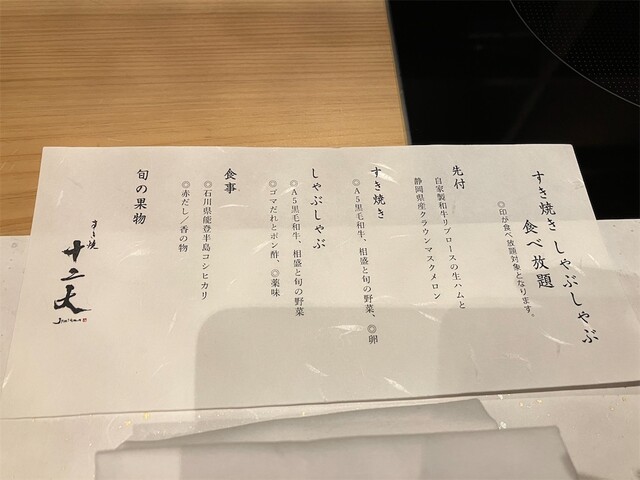 すき焼き しゃぶしゃぶ
食べ放題
◎印が食べ放題対象となります。
先付
自家製和牛リブロースの生ハムと
静岡県産クラウンマスクメロン
すき焼き
◎A5黒毛和牛、相盛と旬の野菜、◎卵
しゃぶしゃぶ
◎A5黒毛和牛、相盛と旬の野菜
◎ゴマだれとポン酢、◎薬味
食事
◎石川県能登半島コシヒカリ
◎赤だし／香の物
旬の果物
すき焼
十二天